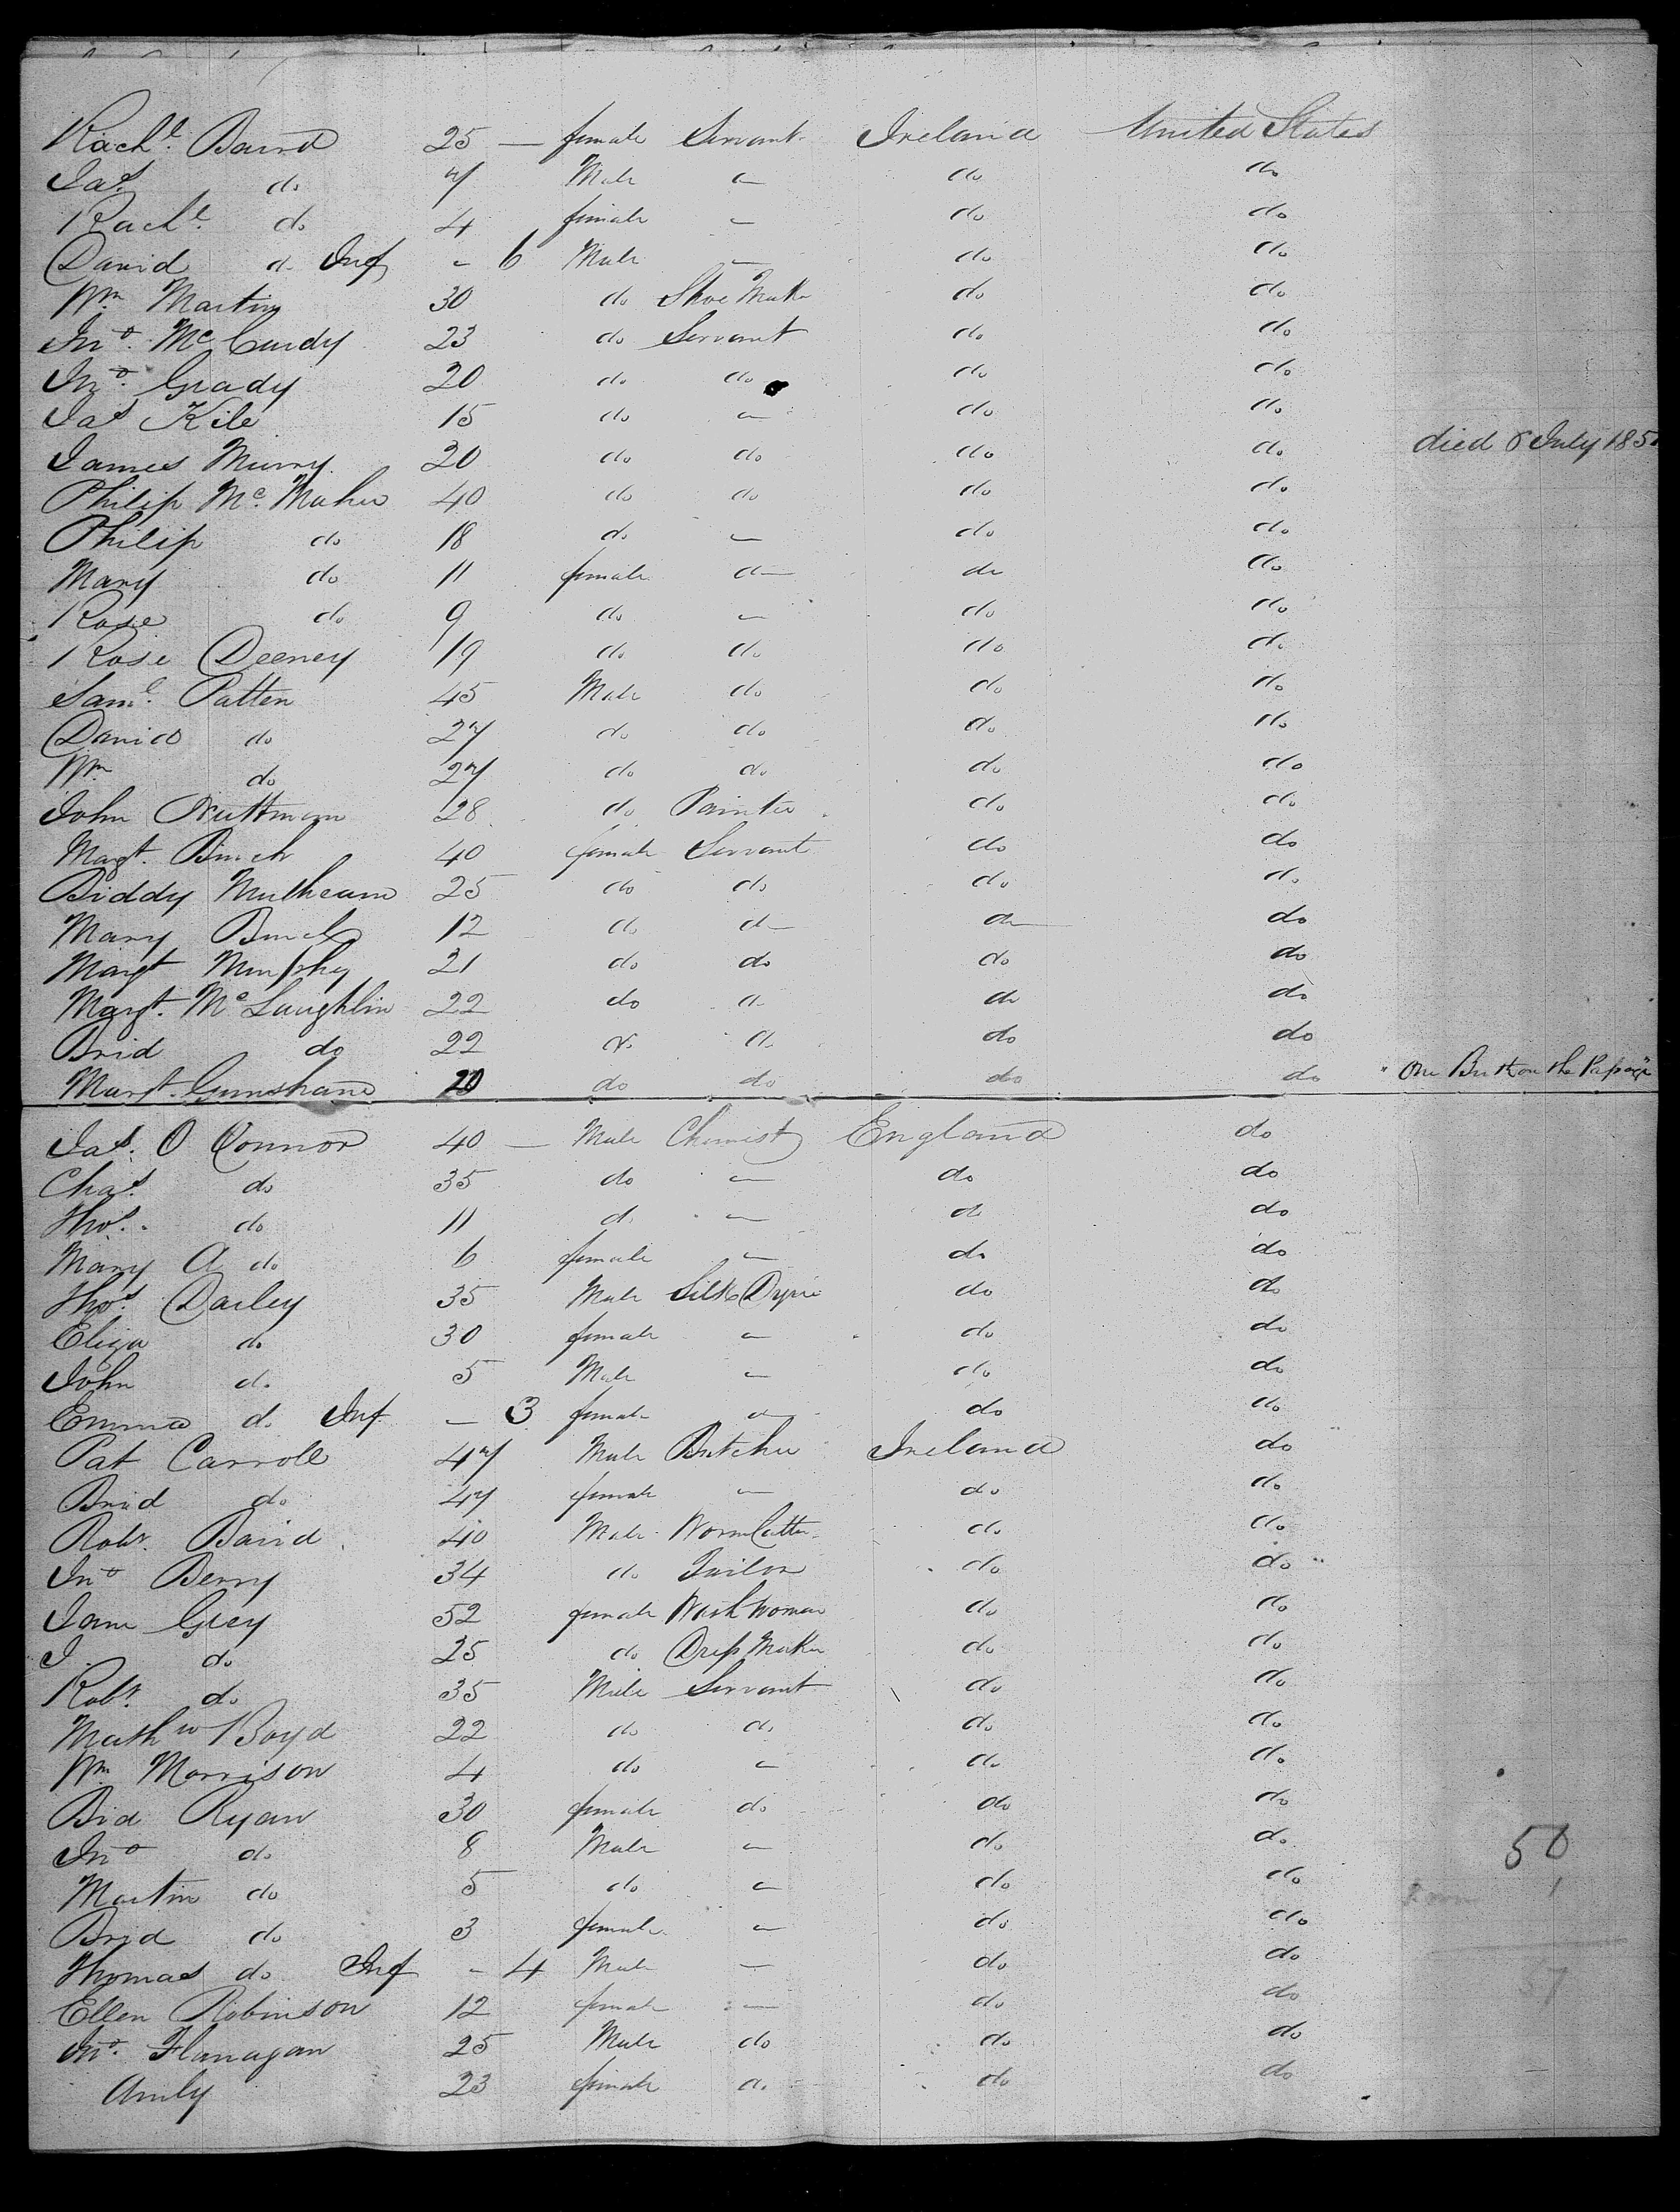 Rachl. Baird 25 — female Servant Ireland United States
Jas. do 7 Male — do do
Rachl. do 4 female — do do
David do Inf - 6 Male — do do
Wm Martin 30 do Shoe Maker do do
Jno. McCurdy 23 do Servant do do
Jno. Grady 20 do do do do
Jas Kile 15 do — do do
James Murry 20 do do do do died 8 July 185
Philip Mc. Maher 40 do do do do
Philip do 18 do — do do
Mary do 11 female do do do
Rose do 9 do — do do
Rose Deeney 19 do do do do
Saml. Patten 45 Male do do do
David do 27 do do do do
Wm do 27 do do do do
John Nuttman 28 do Painter do do
Magt. Burch 40 female Servant do do
Biddy Mulhearn 25 do do do do
Mary Burch 12 do do do do
Margt Murphy 21 do do do do
Margt. McLaughlin 22 do do do do
Brid do 22 do do do do
Margt. Gunshane 20 do do do do "One Birth on the Passage"
Jas. O Connor 40 — Male Chemist England do
Chas. do 35 do — do do
Thos. do 11 do — do do
Mary A do 6 female — do do
Thos. Darley 35 Male Silk Dyer do do
Eliza do 30 female — do do
John do 5 Male — do do
Emma do Inf — 3 female — do do
Pat Carroll 47 Male Butcher Ireland do
Brid do 47 female — do do
Robt. Baird 40 Male do do
Jno Berry 34 do Tailor do do
Jane Grey 52 female Wash Woman do do
J. do 25 do Dress Maker do do
Robt. do 35 Male Servant do do
Mathw Boyd 22 do do do do
Wm Morrison 4 do — do do
Bid Ryan 30 female do do do
Jno do 8 Male — do do 56
Martin do 5 do — do do 1
Brid do 3 female — do do
Thomas do Inf - 4 Male — do do
Ellen Robinson 12 female — do do 57
Jno. Flanagan 25 Male do do do
Amly 23 female do do do